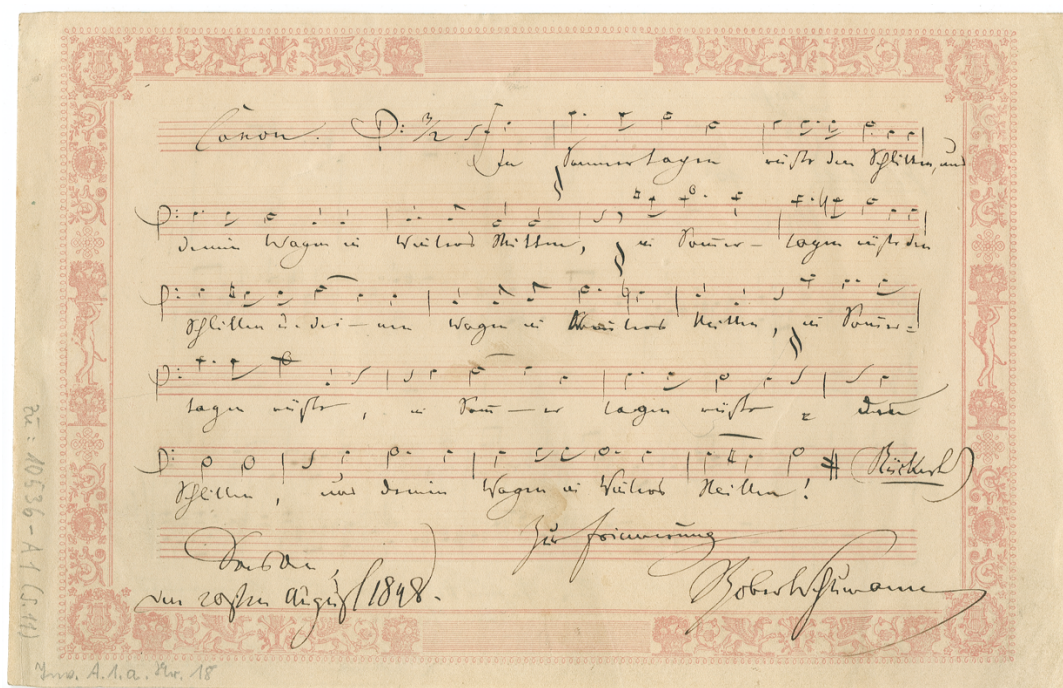 Canon.
In Sommertagen rüste den Schlitten, und
deinen Wagen in Winters Mitten, in Sommer- tagen rüste den
Schlitten u. dei- nen Wagen in Winters Mitten, in Sommer=
tagen rüste, in Som- er tagen rüste den
Schlitten, und deinen Wagen in Winters Mitten! (Rückert)
Zur Erinnerung
Dresden,
den 20sten August 1848. Robert Schumann
zu: 10636-A1 (S.11)
Inv. A.1.a. Nr. 18